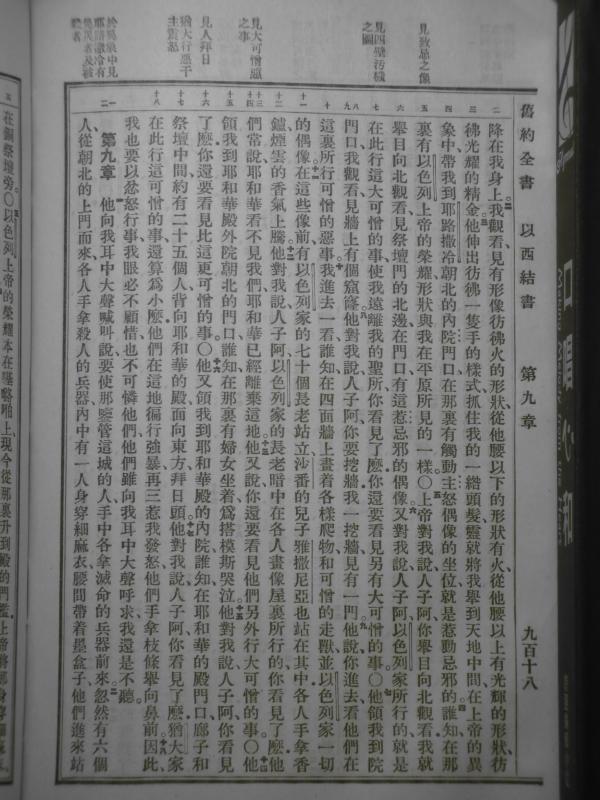 舊約全書　以西結書　第九章　九百十八
見致忌之像
見四壁污穢
之圖
見大可憎惡
之事
見人拜日
猶大行惡干
主震怒
於異象中見
耶路撒冷有
二 降在我身上我觀看見有形像彷彿火的形狀從他腰以下的形狀有火從他腰以上有光輝的形狀彷
三 彿光耀的精金他伸出彷彿一隻手的樣式抓住我的一綹頭髮靈就將我舉到天地中間在上帝的異
四 象中帶我到耶路撒冷朝北的內院門口在那裏有觸動主怒偶像的坐位就是惹動忌邪的誰知在那
五 裏有以色列上帝的榮耀形狀與我在平原所見的一樣〇上帝對我說人子阿你舉目向北觀看我就
六 舉目向北觀看見祭壇門的北邊在門口有這惹忌邪的偶像又對我說人子阿以色列家所行的就是
七 在此行這大可憎的事使我遠離我的聖所你看見了麽你還要看見另有大可憎的事〇他領我到院
八九 門口我觀看見牆上有個窟窿他對我說人子阿你要挖牆我一挖牆見有一門他說你進去看他們在
十 這裏所行可憎的惡事我進去一看誰知在四面牆上畫着各樣爬物和可憎的走獸並以色列家一切
十一 的偶像在這些像前有以色列家的七十個長老站立沙番的兒子雅撒尼亞也站在其中各人手拿香
十二 鑪煙雲的香氣上騰他對我說人子阿以色列家的長老暗中在各人畫像屋裏所行的你看見了麽他
十三十四 們常說耶和華看不見我們耶和華已經離棄這地他又說你還要看見他們另外行大可憎的事〇他
十五 領我到耶和華殿外院朝北的門口誰知在那裏有婦女坐着爲搭模斯哭泣他對我說人子阿你看見
十六 了麽你還要看見比這更可憎的事〇他又領我到耶和華殿的內院誰知在耶和華的殿門口廊子和
十七 祭壇中間約有二十五個人背向耶和華的殿面向東方拜日頭他對我說人子阿你看見了麽猶大家
十八 在此行這可憎的事還算爲小麽他們在這地徧行強暴再三惹我發怒他們手拿枝條舉向鼻前因此
我也要以忿怒行事我眼必不顧惜也不可憐他們他們雖向我耳中大聲呼求我還是不聽
一 第九章　他向我耳中大聲喊叫說要使那鑒管這城的人手中各拿滅命的兵器前來忽然有六個
二 人從朝北的上門而來各人手拿殺人的兵器內中有一人身穿細麻衣腰間帶着墨盒子他們進來站
三 在銅祭壇旁〇以色列上帝的榮耀本在基路咱上現今從那裏升到殿的門檻上帝將那身穿細麻
口唱心和